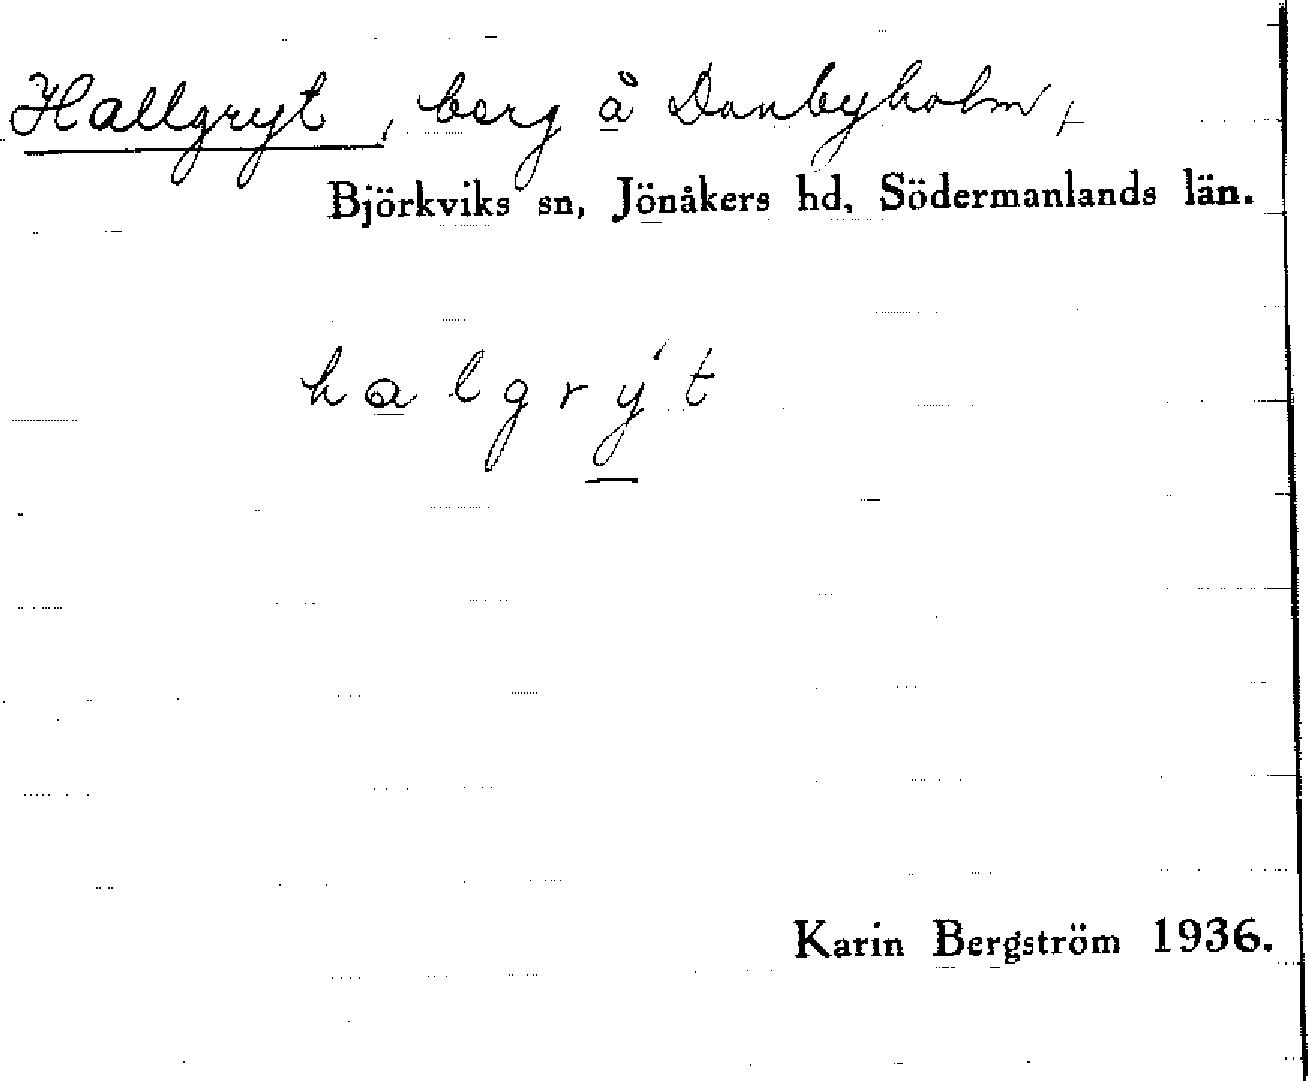 Hallgryt, berg å Danbyholm,
Björkviks sn, Jönåkers hd, Södermanlands län.
halgrýt
Karin Bergström 1936.